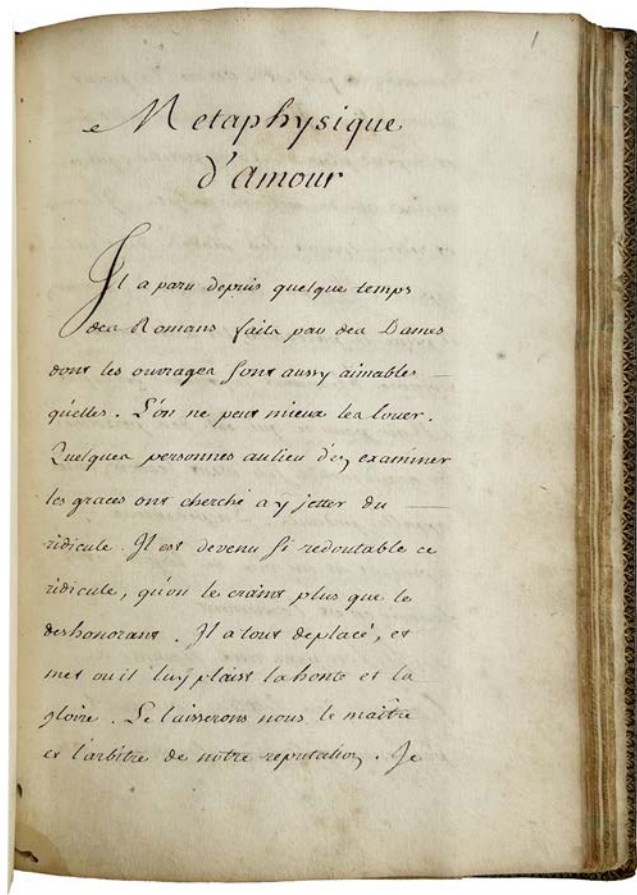 1
Metaphysique
d'amour
Il a paru depuis quelque temps
des Romans faits par des Dames
dont les ouvrages sont aussy aimables
qu'elles. L'on ne peut mieux les louer.
Quelques personnes aulieu d'en examiner
les graces ont cherché a y jetter du
ridicule. Il est devenu si redoutable ce
ridicule, qu'on le craint plus que le
deshonorant. Il a tout deplacé, et
met ou il luy plaist la honte et la
gloire. Le laisserons nous le maître
et l'arbitre de notre reputation. Je